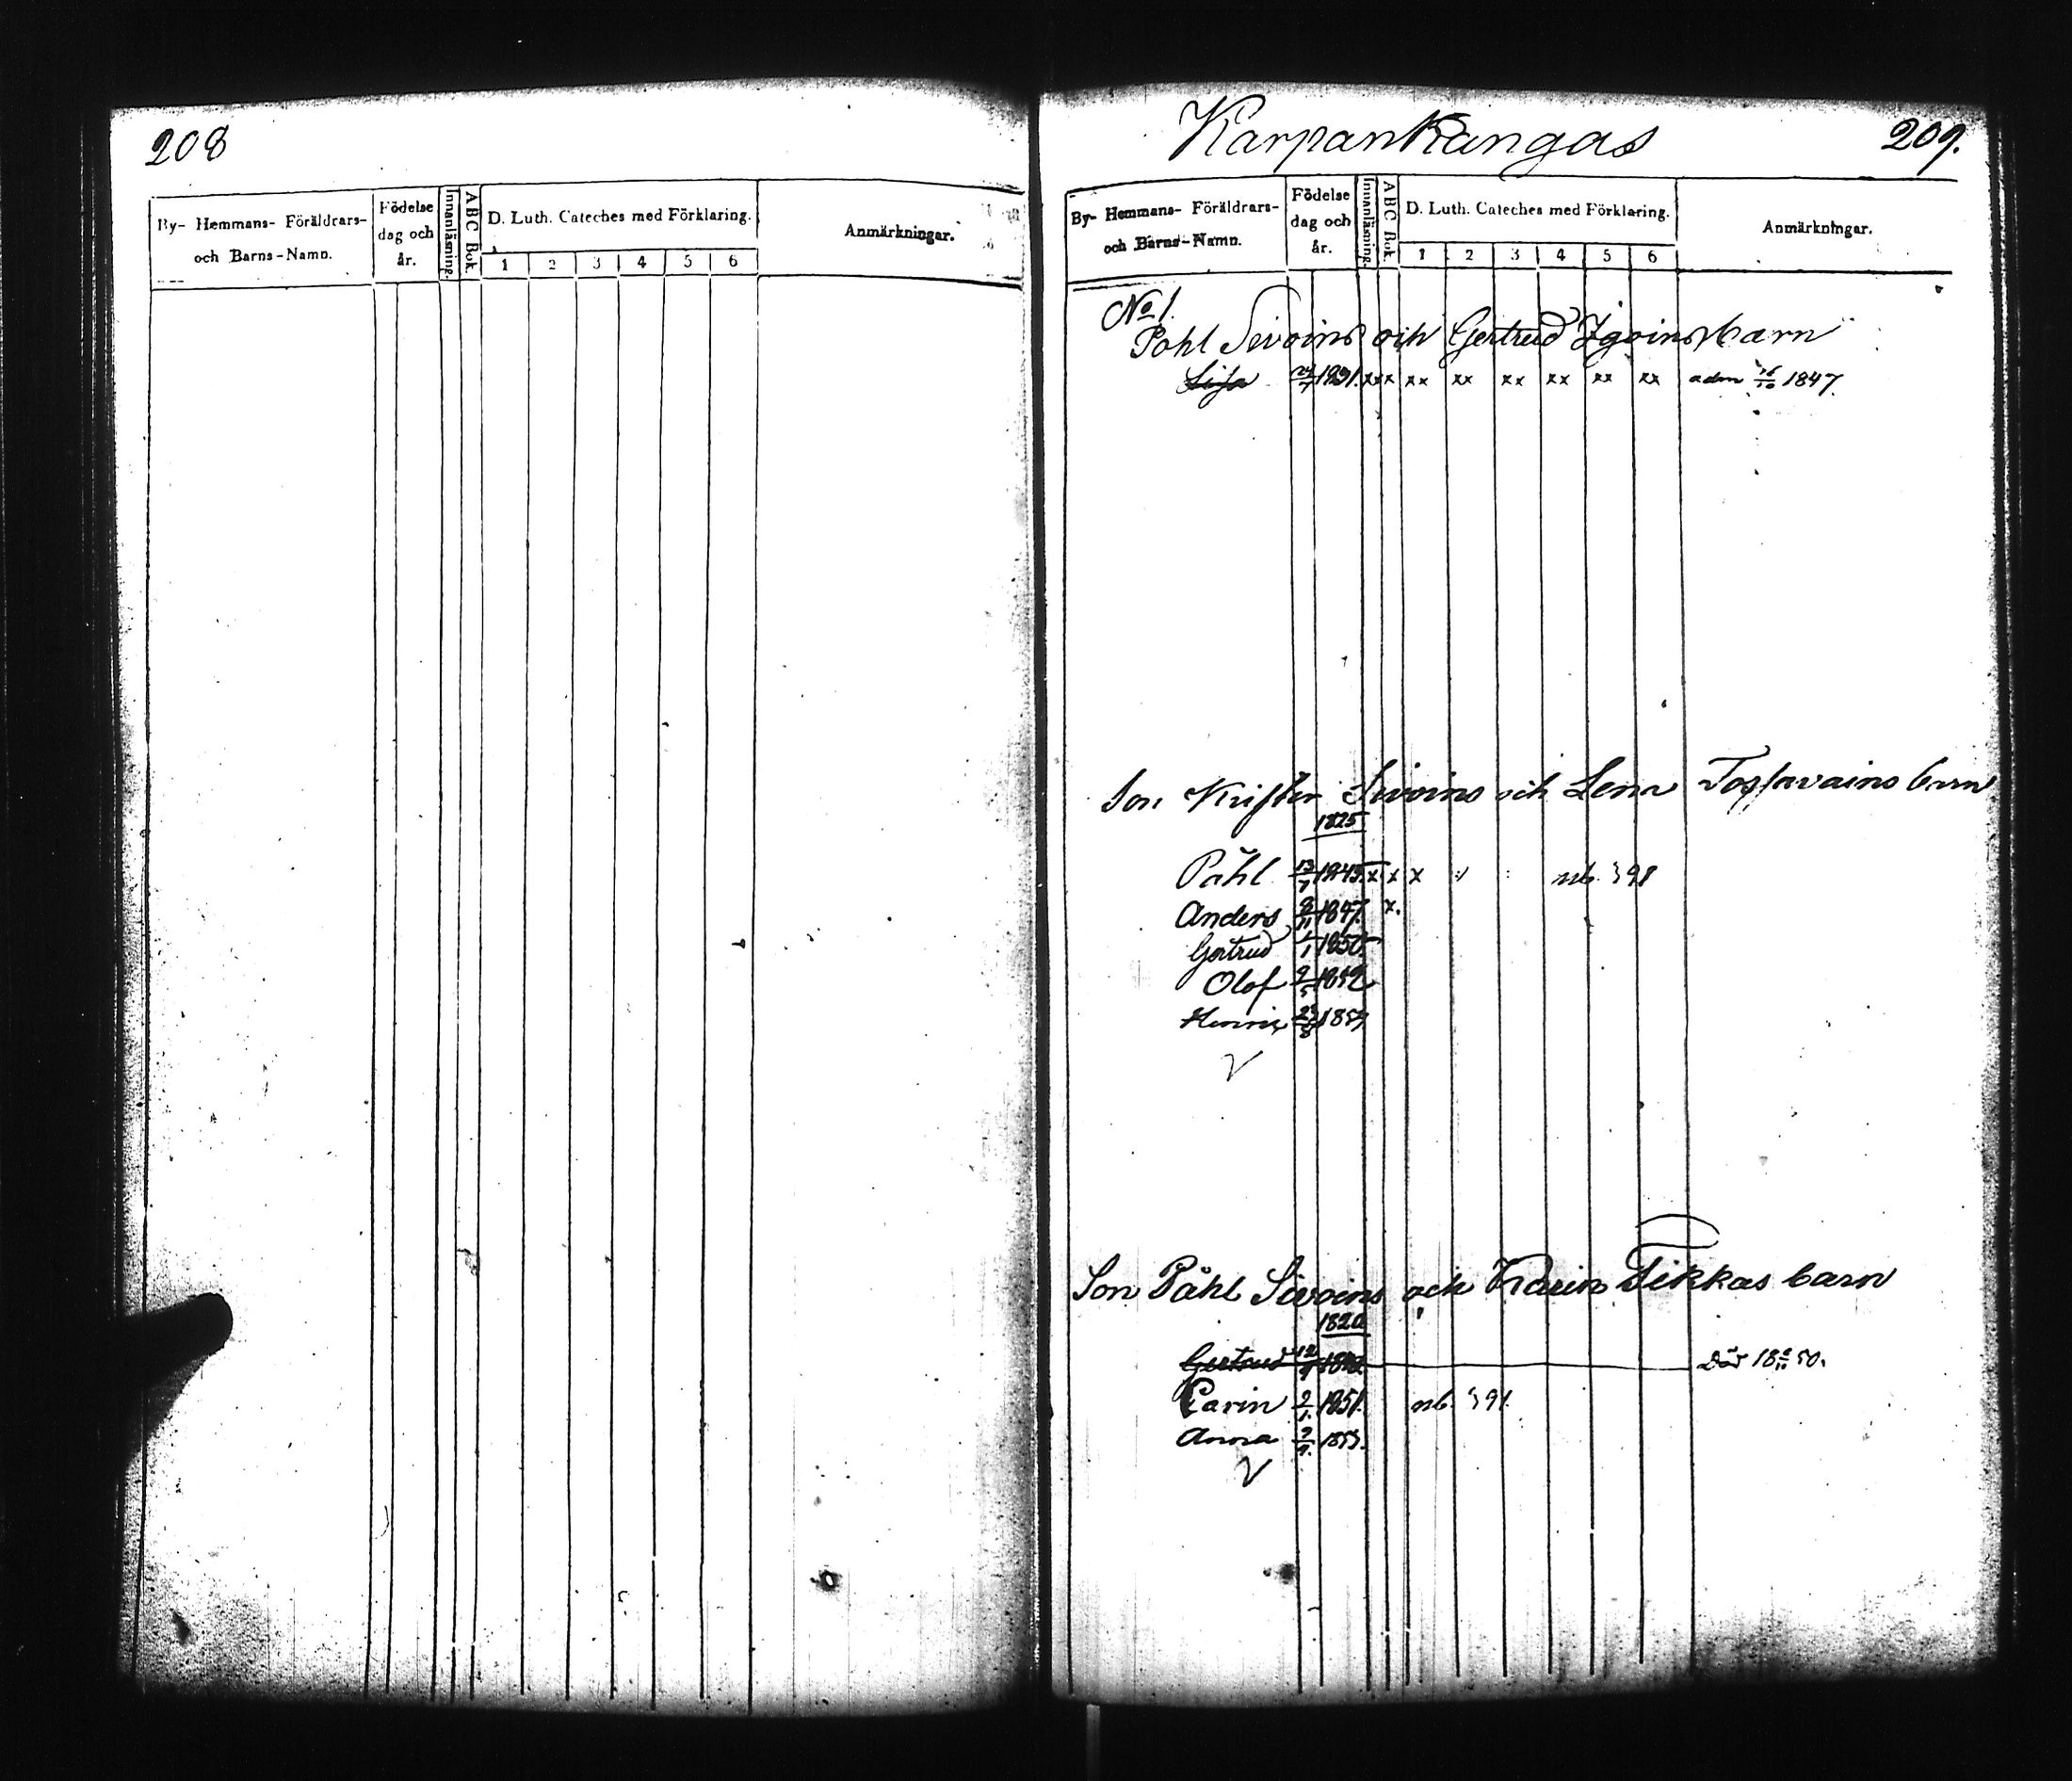 208
By- Hemmans- Föräldrars- och Barns-Namn.
Födelse dag och år.
Innanläsning.
ABC Bok.
D. Luth. Cateches med Förklaring.
1 2 3 4 5 6
Anmärkningar.
Karpankangas 209.
By- Hemmans- Föräldrars- och Barns-Namn.
Födelse dag och år.
Innanläsning.
ABC Bok.
D. Luth. Cateches med Förklaring.
1 2 3 4 5 6
Anmärkningar.
No 1.
Pohl Sivoins och Gertrud barn
Lisa xxx xx xx xx xx xx xx adm 1847.
Son Krister Sivoins och Lena barn
1825
Påhl 13/7 1845 x x x nb. 391
Anders 8/11 1847. x.
Gertrud 1/1 1850.
Olof 9/5 1852
Henric
Son Påhl Sivoins och Karin Tikkas barn
1820
Gertrud Död 50.
Carin 2/1. 1851. nb. 391.
Anna